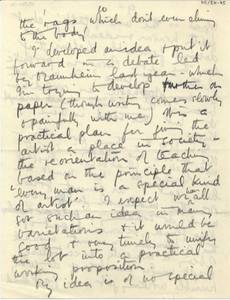 the rags which don't even cling
to the body.
I developed an idea & put it
forward in a debate led
by Mannheim last year – which
I'm trying to develop further on
paper (though writing comes slowly
& painfully with me) This is a
practical plan for giving the
artist a place in society –
the reorientation of teaching
based on the principle that
'every man is a special kind
of artist'. I expect we all
for such an idea in many
variations & it would be
good & very timely to unify
the lot into a practical
working proposition.
My idea is of no special